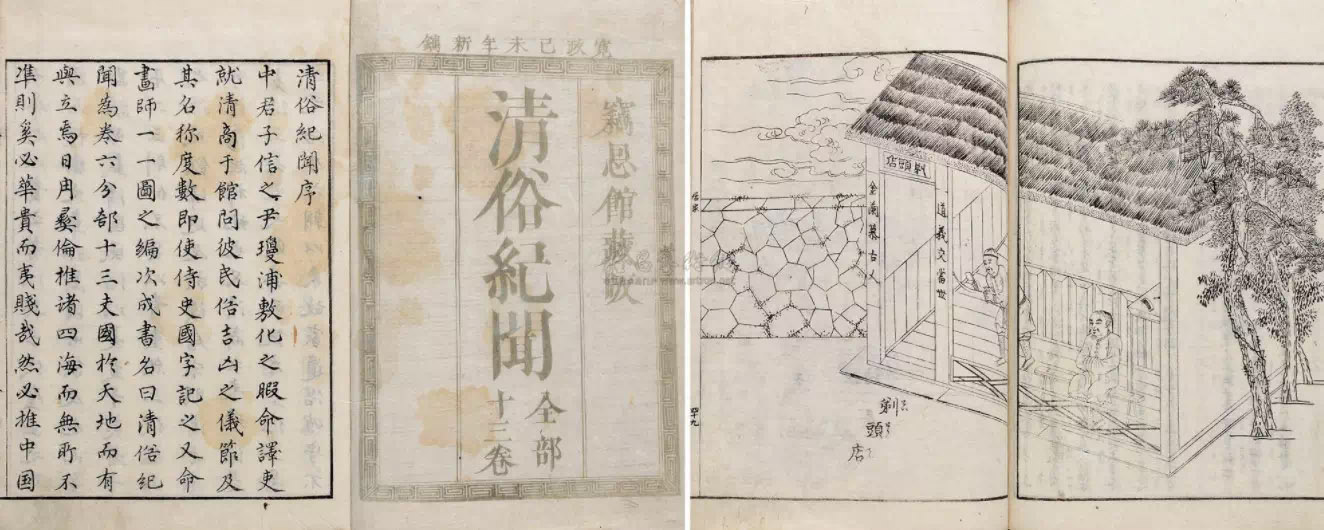 寛政己未年新鐫
竊恩館藏版
清俗紀聞
全部
十三卷
清俗紀聞序
中君子信之尹瓊浦敷化之暇命譯吏
就清商于館問彼民俗吉凶之儀節及
其名称度數即使侍史國字記之又命
畫師一一圖之編次成書名曰清俗紀
聞為卷六分部十三夫國於天地而有
與立焉曰冉彜倫推諸四海而無所不
準則奚必華貴而夷賤哉然必推中国
剃頭店
道義交當世
金蘭慕古人
剃頭店
居家